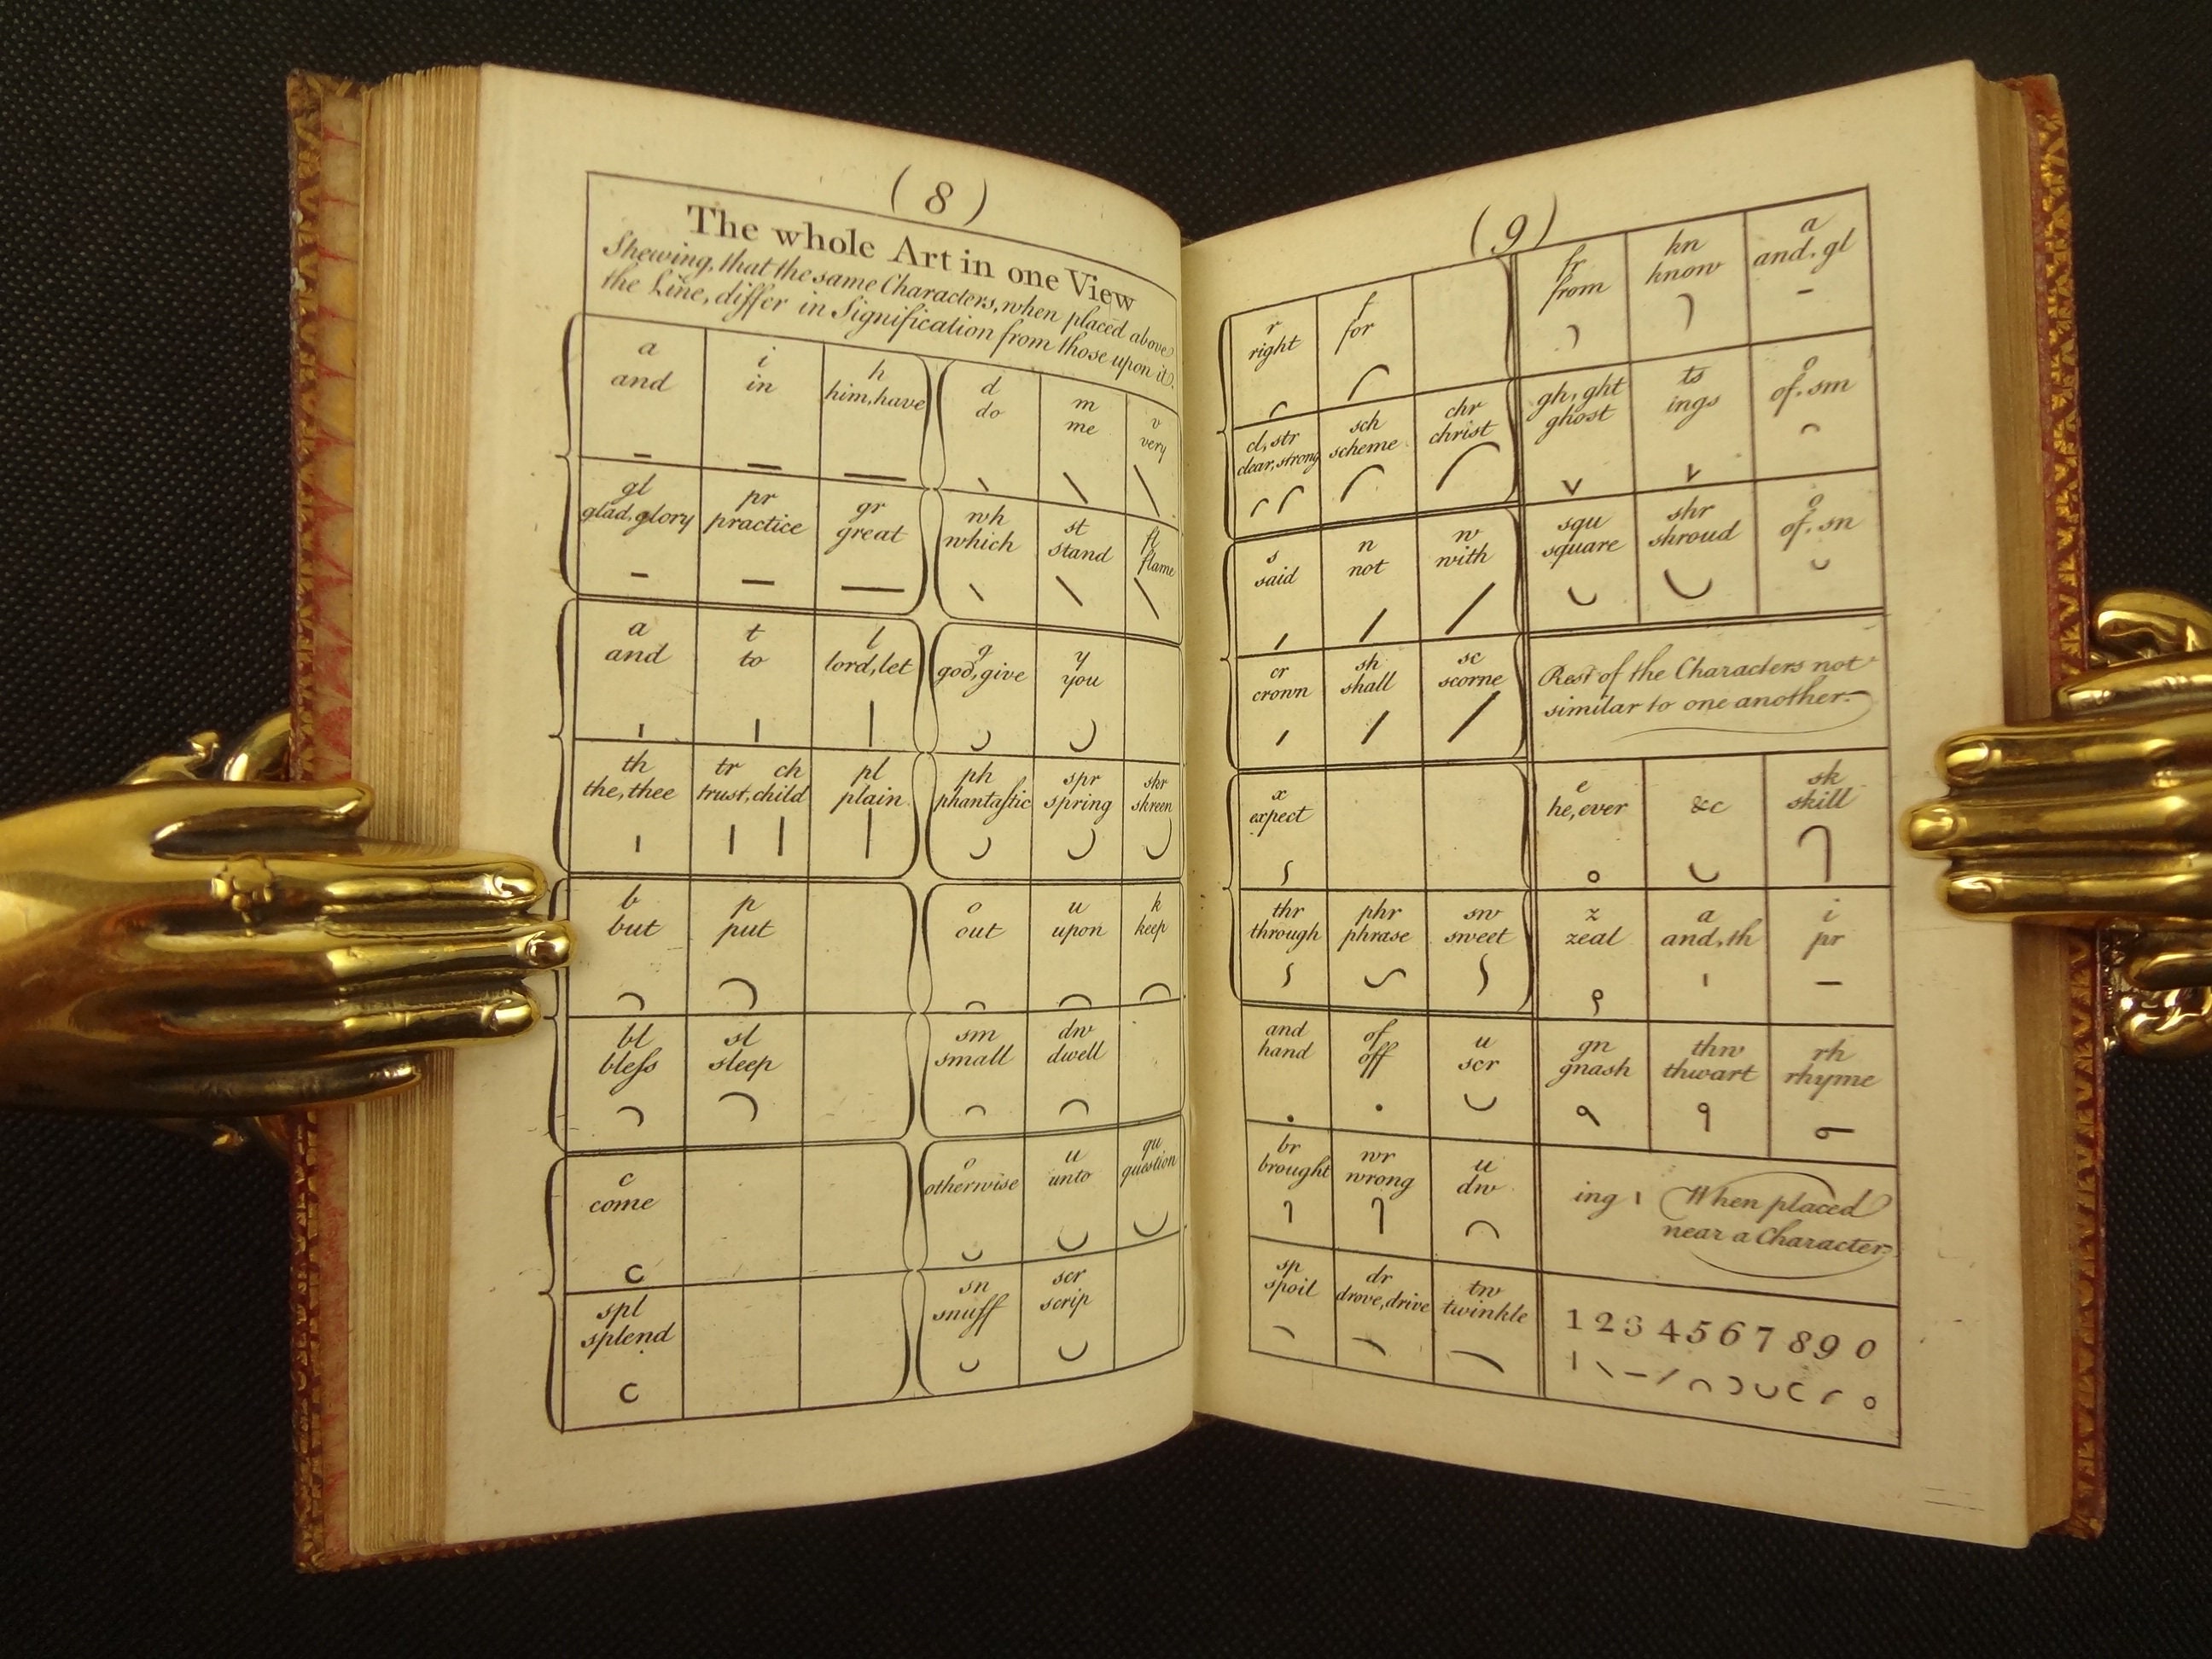 (8)
The whole Art in one View
Shewing, that the same Characters, when placed above
the Line, differ in Signification from those upon it.
a
and
i
in
h
him, have
d
do
m
me
v
very
gl
glad, glory
pr
practice
gr
great
wh
which
st
stand
fl
flame
a
and
t
to
l
lord, let
g
god, give
y
you
th
the, thee
tr ch
trust, child
pl
plain
ph
phantastic
spr
spring
skr
skreen
b
but
p
put
o
out
u
upon
k
keep
bl
bless
sl
sleep
sm
small
dw
dwell
c
come
o
otherwise
u
unto
qu
question
spl
splend
sn
snuff
scr
scrip
(9)
r
right
f
for
fr
from
kn
know
a
and, gl
cl, str
clear, strong
sch
scheme
chr
christ
gh, ght
ghost
ts
ings
o
of, sm
s
said
n
not
w
with
squ
square
shr
shroud
o
of, sn
cr
crown
sh
shall
sc
scorne
Rest of the Characters not
similar to one another.
x
expect
e
he, ever
&c
sk
skill
thr
through
phr
phrase
sw
sweet
z
zeal
a
and, th
i
pr
and
hand
of
off
u
scr
gn
gnash
thw
thwart
rh
rhyme
br
brought
wr
wrong
u
dw
ing
When placed
near a Character
sp
spoil
dr
drove, drive
tw
twinkle
1 2 3 4 5 6 7 8 9 0